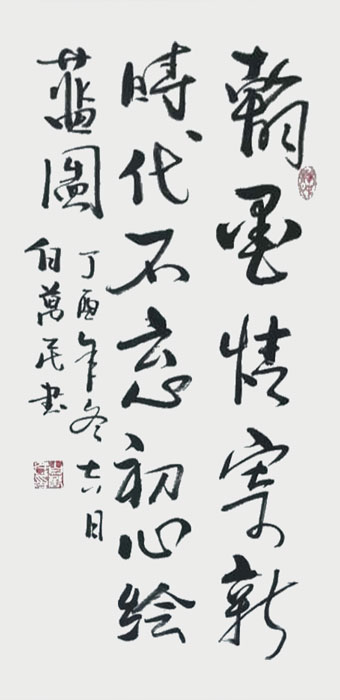 翰墨情寄新
時代不忘初心绘
蓝圖
丁酉年冬古月
白萬民書